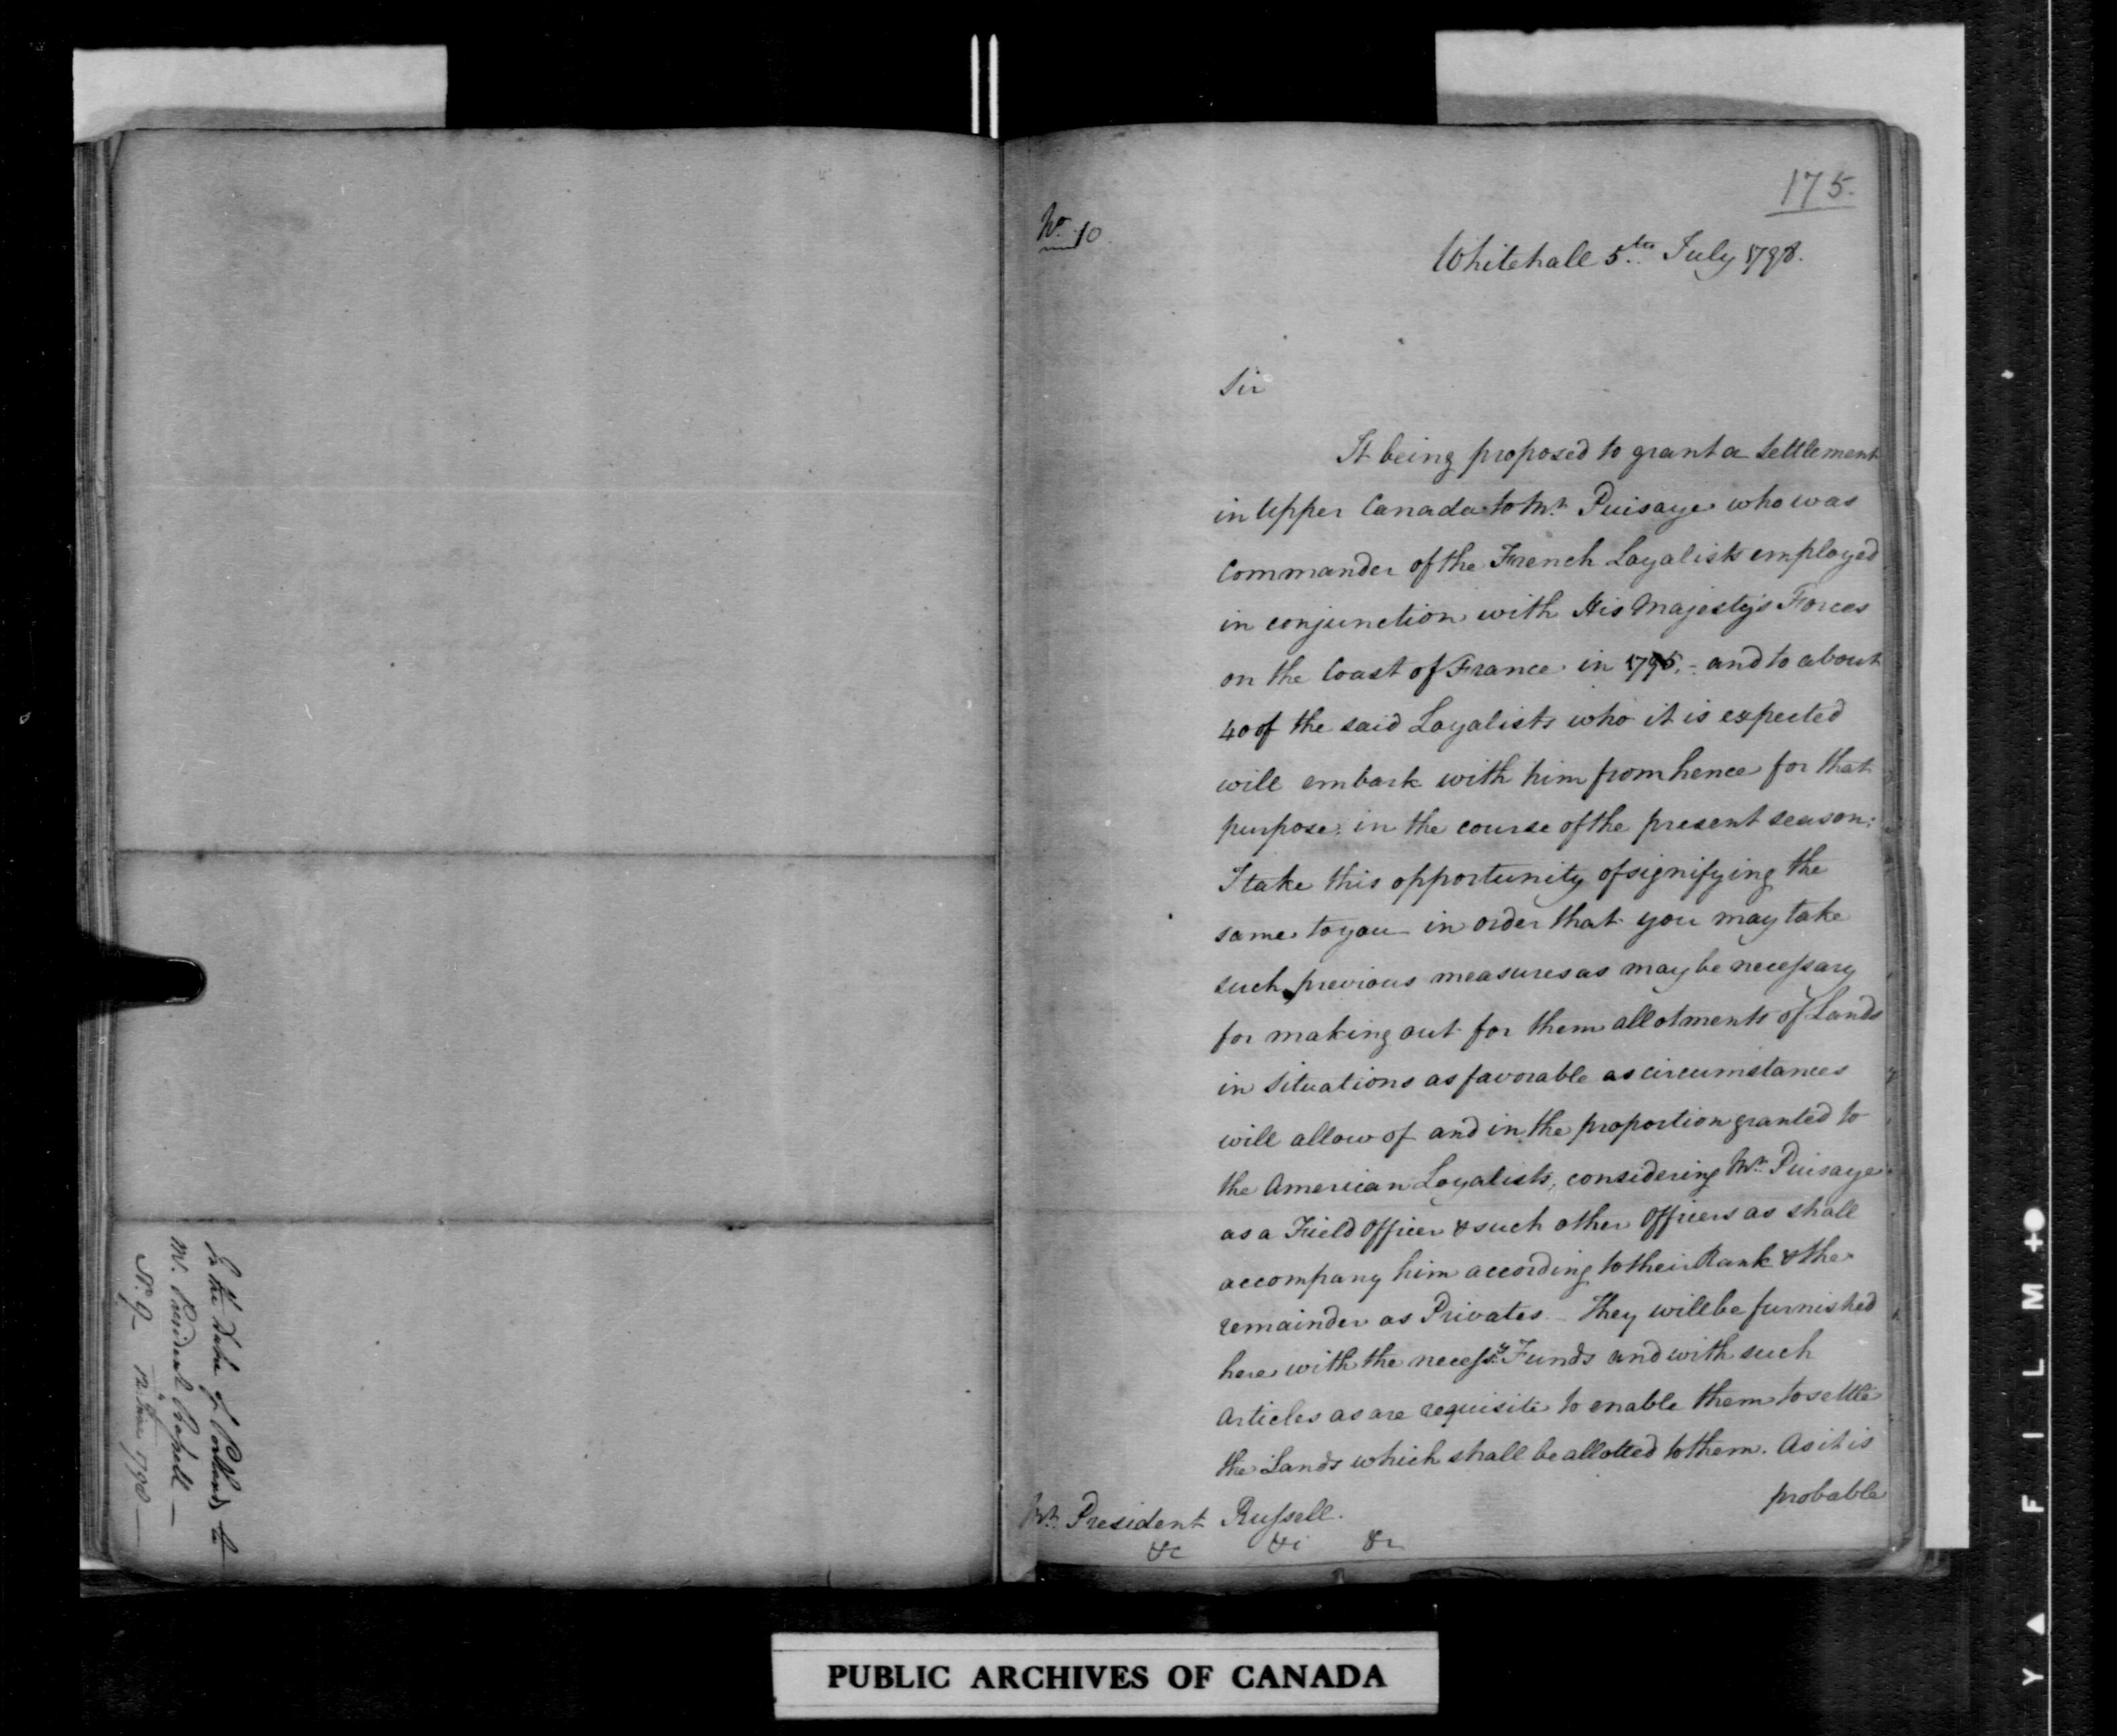 To the Duke of Portland to
Mr. President Russell —
No. 9 12 June 1798 —
175.
No. 10.
Whitehall 5th. July 1798.
Sir
It being proposed to grant a settlement
in Upper Canada to Mr. Puisaye who was
Commander of the French Loyalists employed
in conjunction with His Majesty's Forces
on the Coast of France in 1795, - and to about
40 of the said Loyalists who it is expected
will embark with him from hence for that
purpose in the course of the present season:
I take this opportunity of signifying the
same to you in order that you may take
such previous measures as may be necessary
for making out for them allotments of Lands
in situations as favorable as circumstances
will allow of and in the proportion granted to
the American Loyalists, considering Mr. Puisaye
as a Field Officer & such other Officers as shall
accompany him according to their Rank & the
remainder as Privates. - They will be furnished
here with the necessy. Funds and with such
Articles as are requisite to enable them to settle
the Lands which shall be allotted to them. As it is
probable
Mr. President Russell.
&c &c &c
PUBLIC ARCHIVES OF CANADA